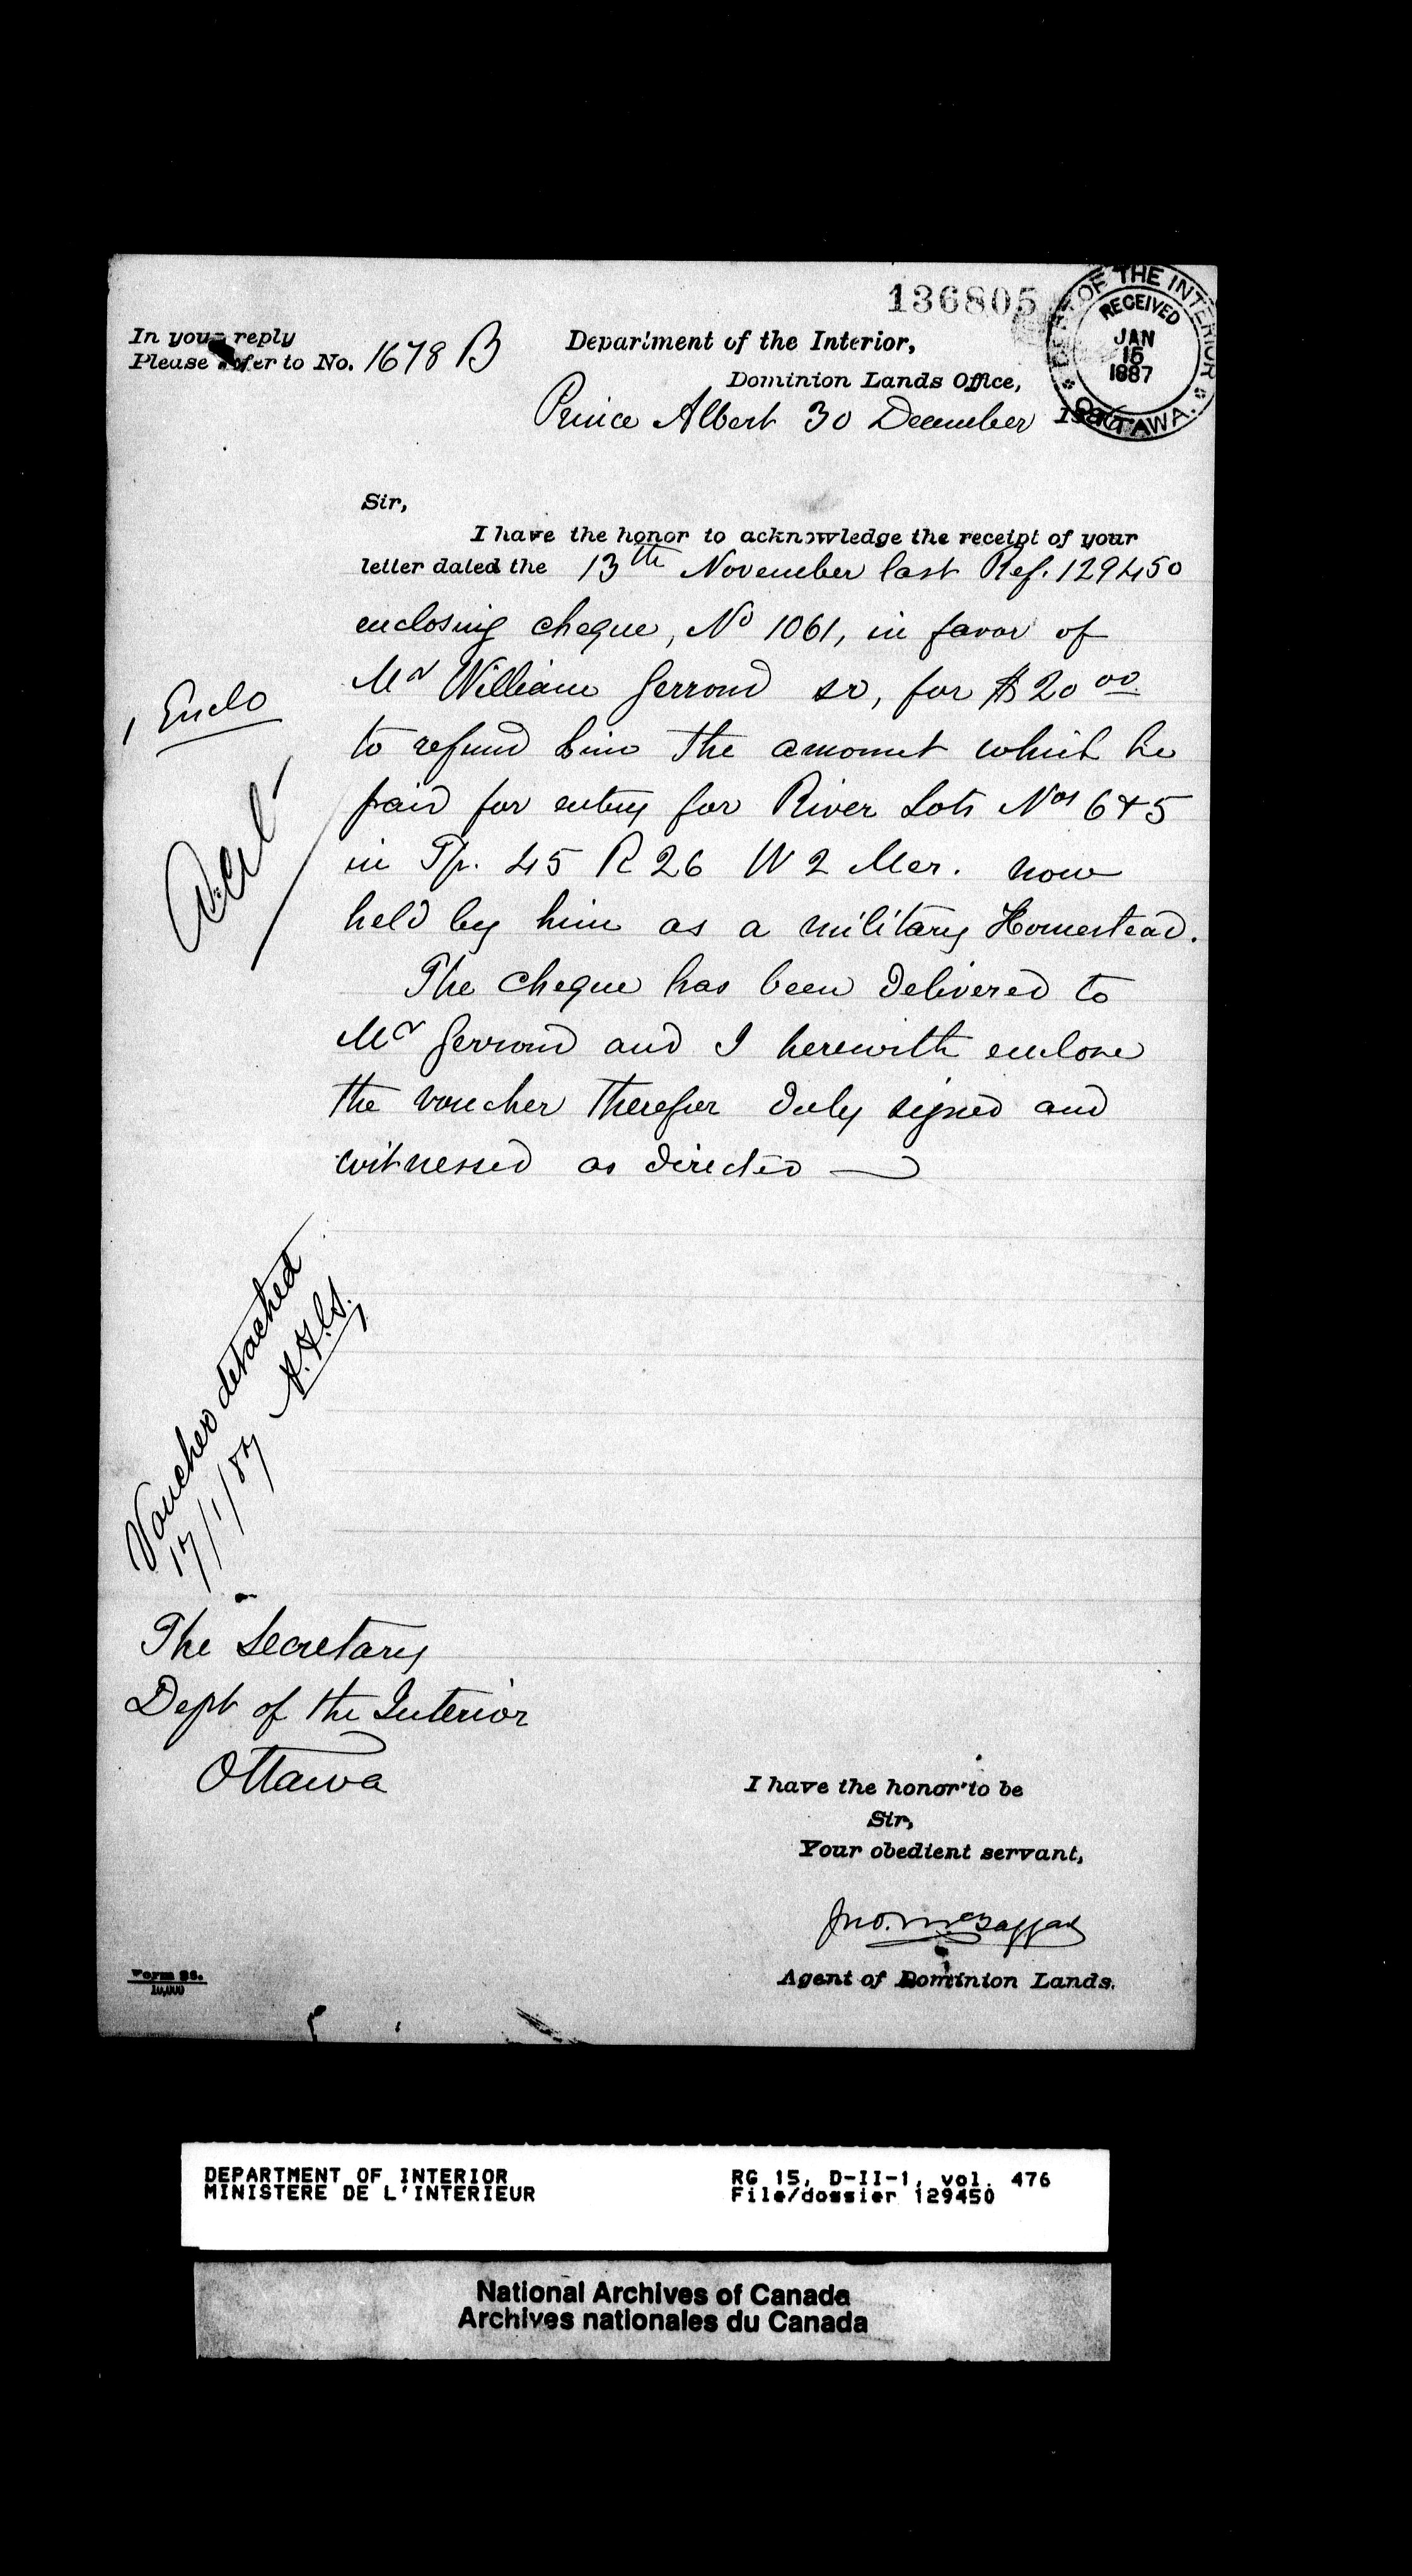 136805
DEPT OF THE INTERIOR
RECEIVED
JAN
15
1887
OTTAWA.
In your reply
Please refer to No. 1678 B
Department of the Interior,
Dominion Lands Office,
Prince Albert 30 December 1886
Sir,
I have the honor to acknowledge the receipt of your
letter dated the 13th November last Ref. 129450
enclosing cheque, No 1061, in favor of
Mr William Gerrond sr, for $20 00
to refund him the amount which he
paid for entry for River Lots Nos 6 & 5
in Tp. 45 R 26 W 2 Mer. now
held by him as a military Homestead.
The cheque has been delivered to
Mr Gerrond and I herewith enclose
the voucher therefor duly signed and
witnessed as directed
1 Enclo
Voucher detached
17/1/87
The Secretary
Dept of the Interior
Ottawa
I have the honor to be
Sir,
Your obedient servant,
Jno. McTaggart
Agent of Dominion Lands.
Form 26.
10,000
DEPARTMENT OF INTERIOR
MINISTERE DE L'INTERIEUR
RG 15, D-II-1, vol. 476
File/dossier 129450
National Archives of Canada
Archives nationales du Canada